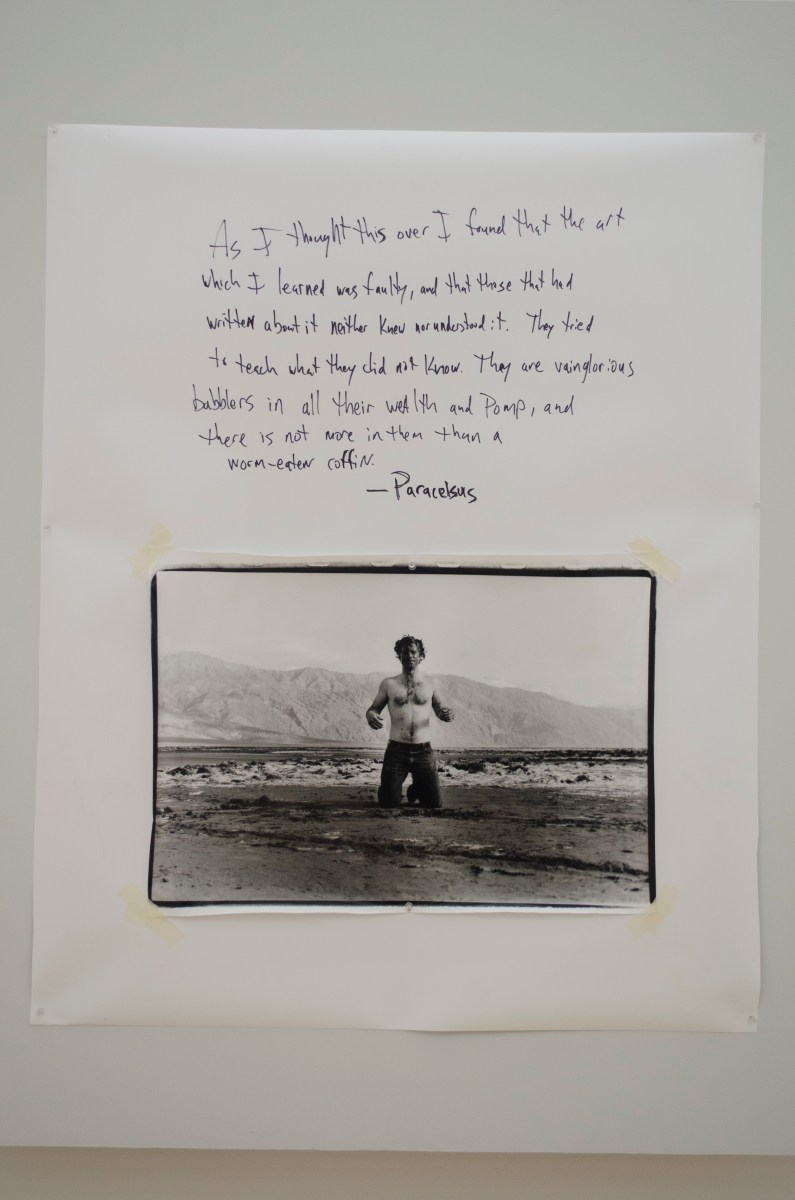 As I thought this over I found that the art
which I learned was faulty, and that those that had
written about it neither knew nor understood it. They tried
to teach what they did not know. They are vainglorious
babblers in all their wealth and Pomp, and
there is not more in them than a
worm-eaten coffin.
—Paracelsus